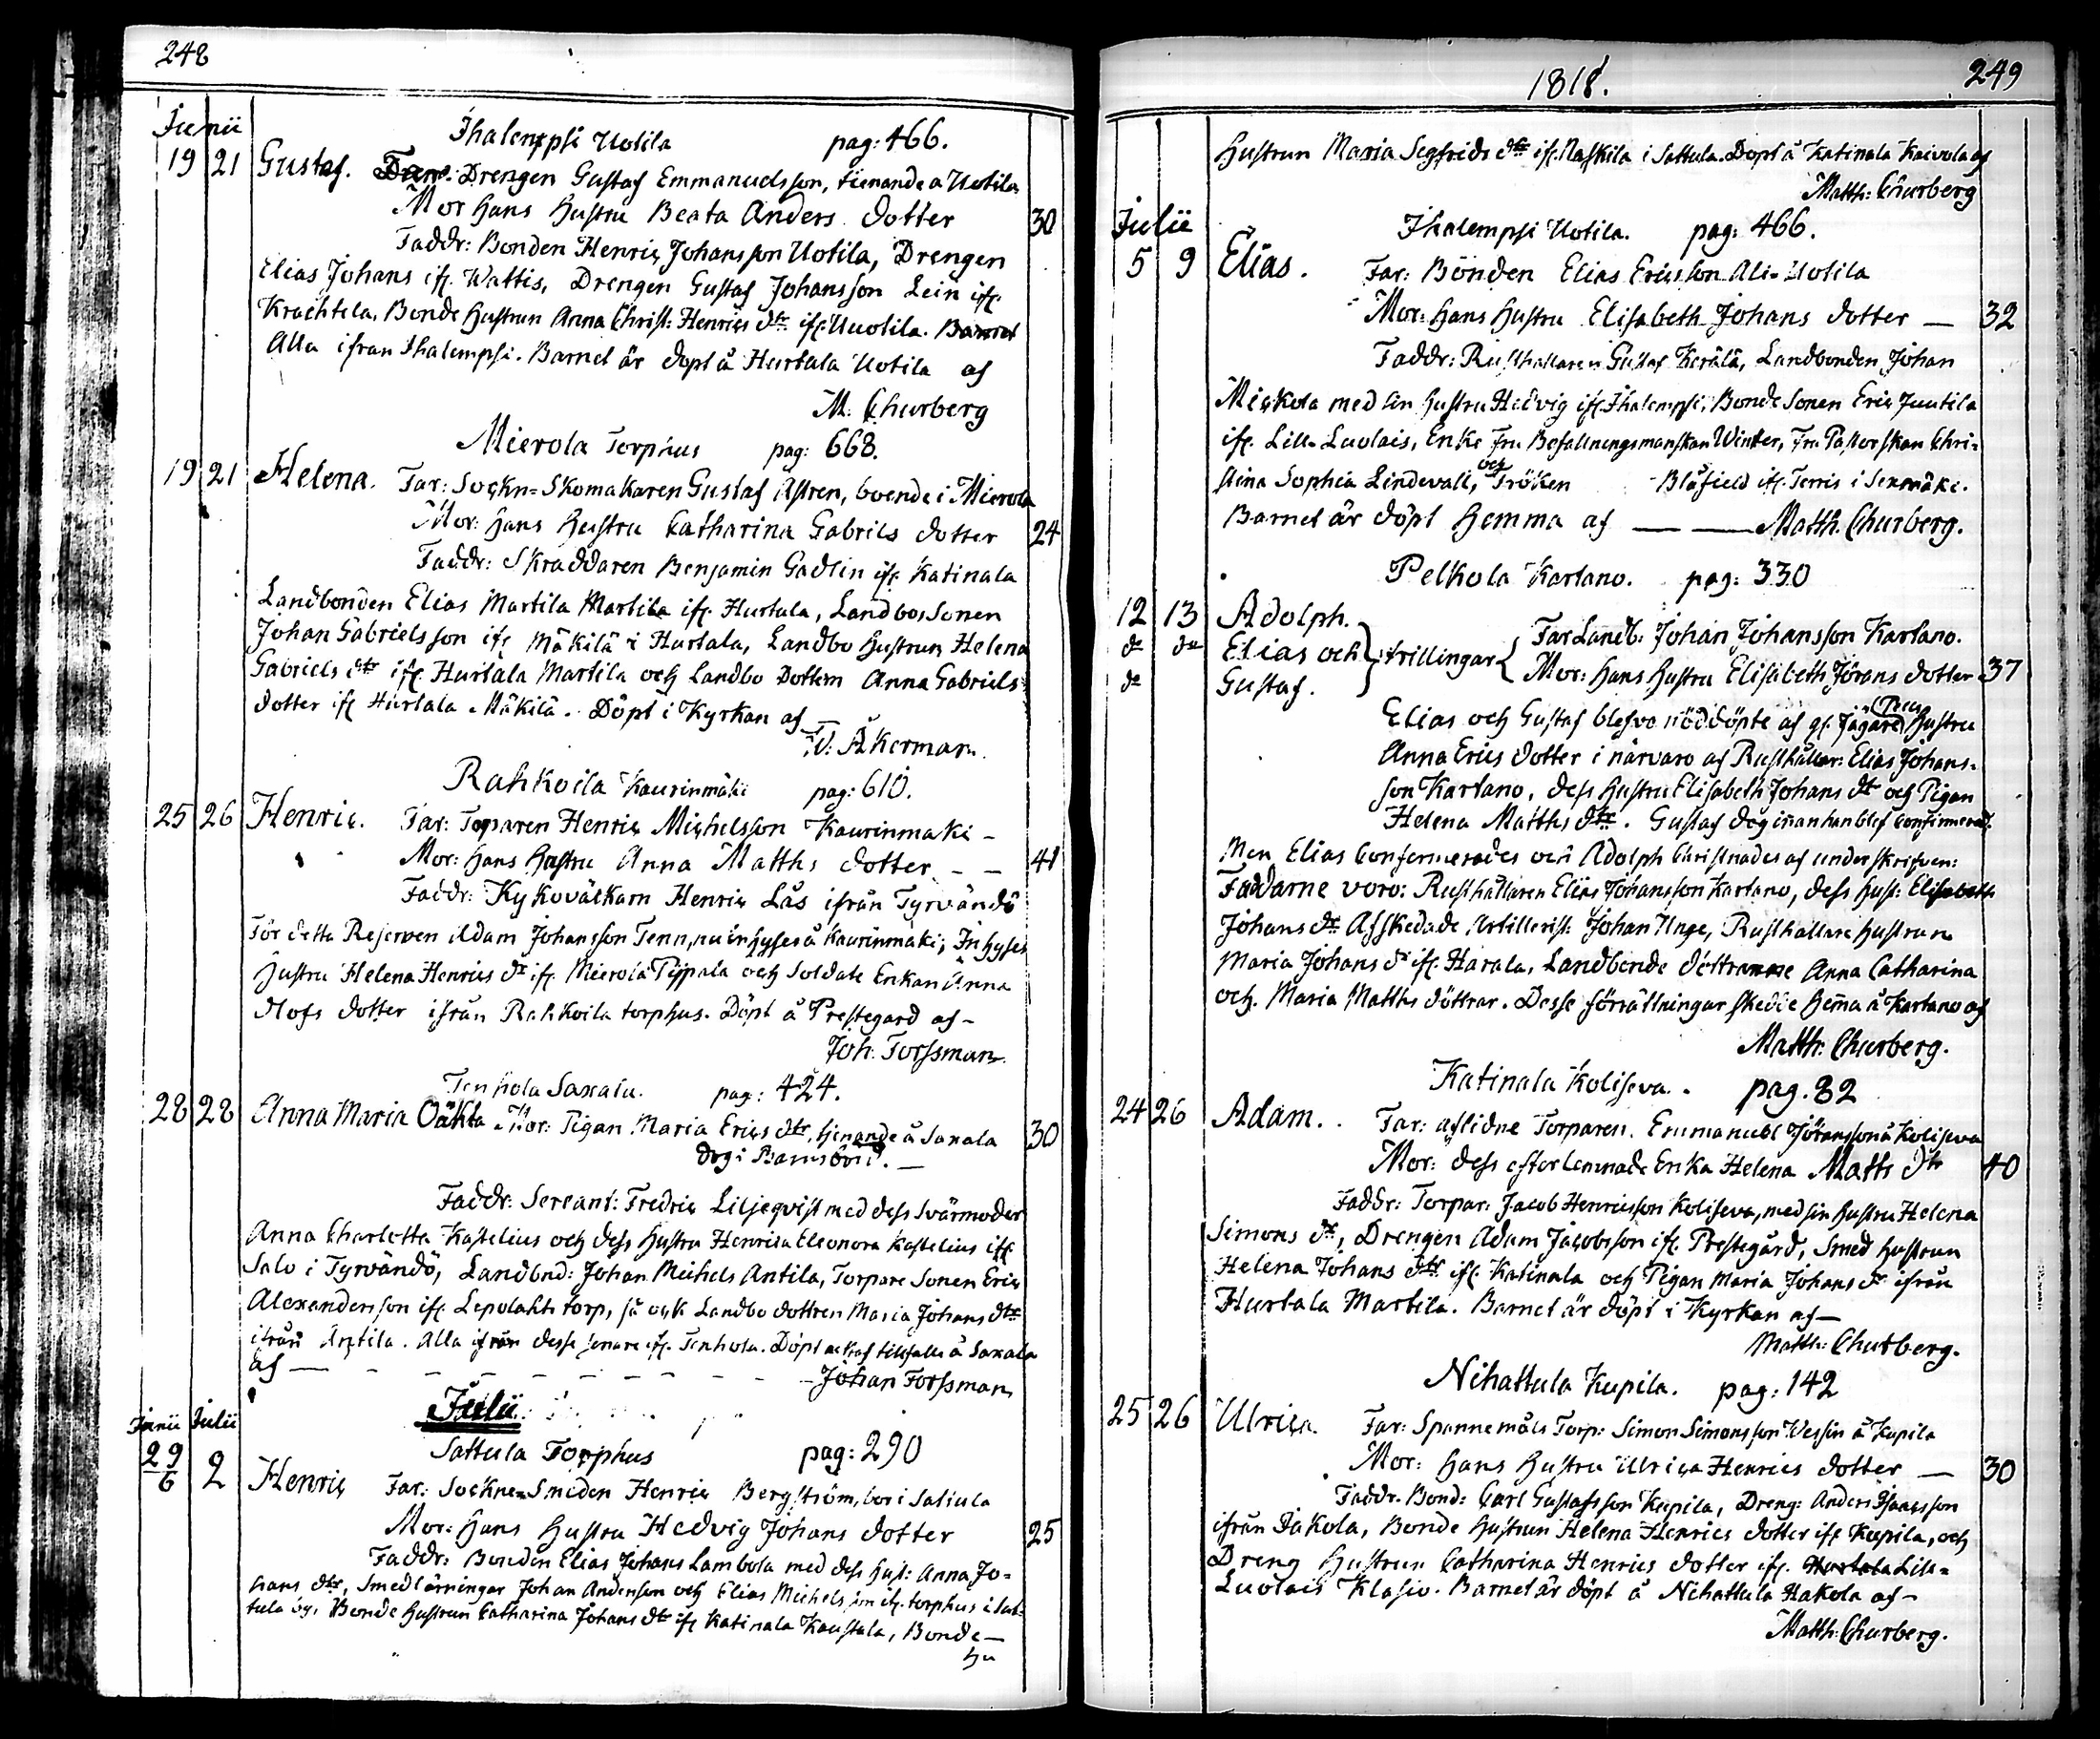 248
Junii
Ihalempsi Uotila pag: 466.
19 21 Gustaf. Drengen Gustaf Emmanuelsson, tienande a Uotila
Mor Hans Hustru Beata Anders dotter 30
Faddr: Bonden Henric Johansson Uotila, Drengen
Elias Johans ifr. Wattis, Drengen Gustaf Johansson Lein ifr.
Krachtela, Bonde Hustrun Anna Christ: Henrics dtr ifr: Uuotila. Barnet
Alla ifran Ihalempsi. Barnet är döpt å Hurtala Uotila af
M. Churberg
Mierola Torphus pag: 668.
19 21 Helena. Far: Sockn=Skomakaren Gustaf Astren, boende i Mierola
Mor: Hans Hustru Catharina Gabriels dotter 24
Faddr: Skraddaren Benjamin Gadlin ifr. Katinala
Landbonden Elias Martila Martila ifr. Hurtala, Landbos Sonen
Johan Gabrielsson ifr Mäkilä i Hurtala, Landbo Hustrun Helena
Gabriels dtr ifr. Hurtala Martila och Landbo Dottern Anna Gabriels
dotter ifr Hurtala Mäkilä. Döpt i Kyrkan af
Åkerman.
Rahkoila Kaurinmäki pag: 610.
25 26 Henric. Far: Torparen Henric Michelsson Kaurinmaki -
Mor: Hans Hustru Anna Matths dotter - - 41
Faddr: Kykovälkarn Henric Lås ifrån Tyrvändö
För detta Reserven Adam Johansson Tenn, nu inhyses å Kaurinmäki; Inhyses
Hustru Helena Henrics dr ifr. Mierola Pijpala och Soldate Enkan Anna
Olofs dotter ifrån Rahkoila torphus. Döpt å Prestegard af -
Joh: Forssman.
Tenhola Saxala. pag: 424.
28 28 Anna Maria Oäkta Mor: Pigan Maria Erics dtr, tjenande å Saxala 30
dog i Barnsbörd. —
Faddr: Sercant: Fredric Liljeqvist med dess Svärmoder
Anna Charlotta Kastelius och dess Hustru Henrica Eleonora Kastelius ifr.
Salo i Tyrvändö, Landbnd: Johan Michels Antila, Torpare Sonen Eric
Alexandersson ifr Lepolahti torp, så ock Landbo dottren Maria Johans dtr
ifrån Antila. Alla ifrån desse senare ifr. Tenhola. Döpt tillfalle å Saxala
af — - - - - - - - - Johan Forssman
Julii
Junii Julii
Sattula Torphus pag: 290
29/6 2 Henric Far: Sockne=Smeden Henric Bergström, bor i Sattula
Mor: Hans Hustru Hedvig Johans dotter 25
Faddr: Bonden Elias Johans Lambola med dess Hust: Anna Jo=
hans dtr, Smedlärningar Johan Anderson och Elias Michelsson ifr. torphus i Sat=
tula by, Bonde Hustrun Catharina Johans dtr ifr Katinala Kaustala, Bonde —
Hu
1818. 249
Hustrun Maria Segfrids dtr ifr. Maskila i Sattula. Dopt å Katinala Kaivola af
Matth: Churberg
Julii
Ihalempsi Uotila. pag: 466.
5 9 Elias. Far: Bonden Elias Ericsson Ali=Uotila
Mor: Hans Hustru Elisabeth Johans dotter — 32
Faddr: Rusthallaren Gustaf Kerälä, Landbonden Johan
Mickola med sin Hustru Hedvig ifr. Ihalempsi; Bonde Sonen Eric Juutila
ifr. Lill=Luolais, Enke Fru Befallningsmanskan Winter, Fru Pastorskan Chri=
stina Sophia Lindevall, och Fröken Blåfield ifr. Terris i Sexmäki.
Barnet är döpt Hemma af — — Matth. Churberg.
Pelkola Kartano. pag: 330
12 13 Adolph.
do do Elias och } trillingar { Far Landb: Johan Johansson Kartano.
do Gustaf. Mor: Hans Hustru Elisabeth Jörans dotter 37
Elias och Gustaf blefvo nöddöpte af gl. Jägare Hustru
Anna Erics dotter i närvaro af Rusthållar: Elias Johans=
son Kartano, dess Hustru Elisabeth Johans dr och Pigan
Helena Matths dtr. Gustaf dog innan han blef Confirmerad.
Men Elias Confirmerades och Adolph Christnades af underskrifven:
Faddarne voro: Rusthållaren Elias Johansson Kartano, dess Hust: Elisabeth
Johans dr Afskedade Artillerist: Johan Unge, Rusthallare Hustrun
Maria Johans dr ifr. Harala, Landbonde döttrarne Anna Catharina
och Maria Matths döttrar. Desse förrättningar skedde Hemma å Kartano af
Matth: Churberg.
Katinala Koliseva. pag. 82
24 26 Adam. Far: aflidne Torparen. Emmanuel Jöransson å Koliseva
Mor: dess efterlemnade Enka Helena Matts dtr 40
Faddr: Torpar: Jacob Henricsson Koliseva, med sin Hustru Helena
Simons dr, Drengen Adam Jacobsson ifr. Prestegård, Smed Hustrun
Helena Johans dtr ifr. Katinala och Pigan Maria Johans dr ifrån
Hurtala Martila. Barnet är döpt i Kyrkan af —
Matth: Churberg.
Nihattula Kupila. pag: 142
25 26 Ulrica. Far: Spannemåls Torp: Simon Simonsson Wessin å Kupila
Mor: Hans Hustru Ulrica Henrics dotter — 30
Faddr. Bond: Carl Gustafsson Kupila, Dreng: Anders Isaacsson
ifrån Jakola, Bonde Hustrun Helena Henrics dotter ifr Kupila, och
Dreng Hustrun Catharina Henrics dotter ifr. Hurtala Lill=
Luolais Klasio. Barnet är döpt å Nihattula Hakola af -
Matth: Churberg.